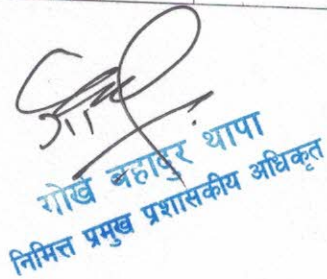 गोखे बहादुर थापा
निमित्त प्रमुख प्रशासकीय अधिकृत